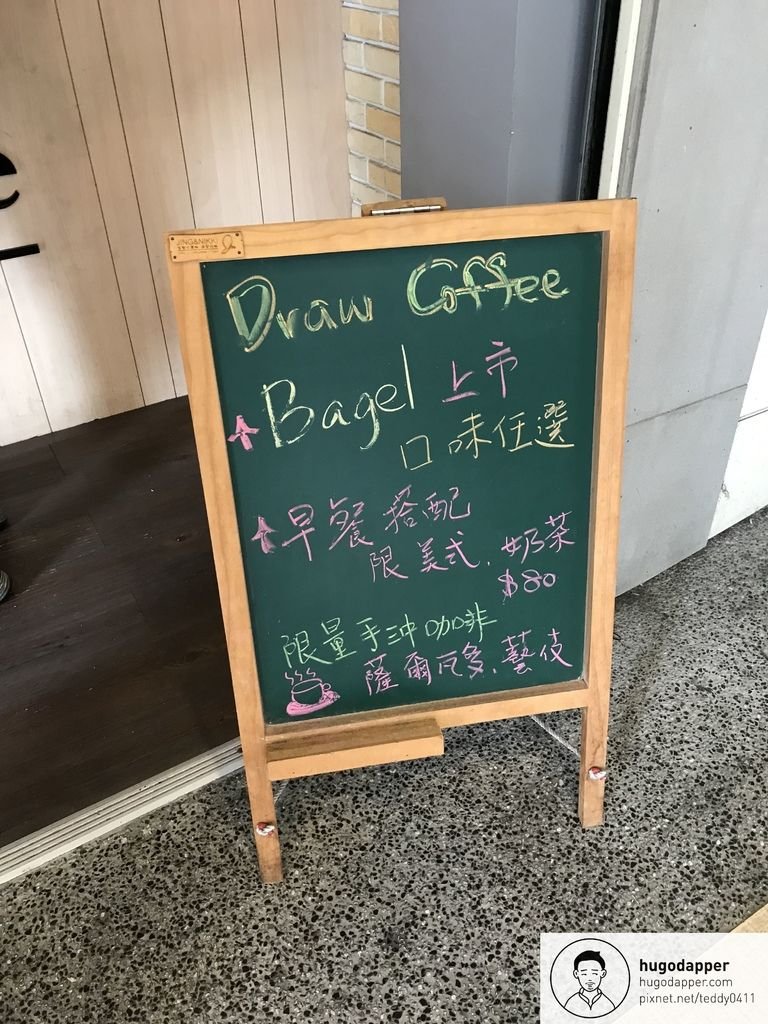 e
JING&NIKKI
Draw Coffee
Bagel 上市
口味任選
早餐搭配
限美式.奶茶
$80
限量手沖咖啡
薩爾瓦多.藝伎
hugodapper
hugodapper.com
pixnet.net/teddy0411